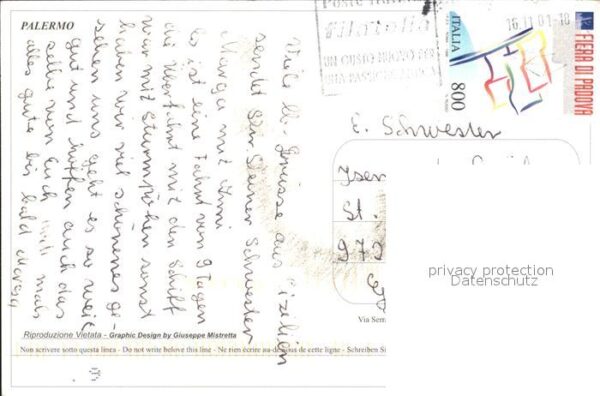 PALERMO
Viele lb. Grüsse aus Sizilien
sendet Dir Deiner Schwester
Marga mit Anni
Es ist eine Fahrt von 9 Tagen
die Überfahrt mit den Schiff
war mit Sturmböhen sonst
haben wir viel schönenes ge-
sehen uns geht es so weit
gut und hoffen auch das
selbe von Euch mals
alles gute bis bald
Riproduzione Vietata - Graphic Design by Giuseppe Mistretta
Non scrivere sotto questa linea - Do not write below this line - Ne rien écrire au-dessous de cette ligne - Schreiben Si
Poste
Filatelia
UN GUSTO BUONO PER
UNA PASSIONE
16.11.01-18
ITALIA
800
FIERA DI PADOVA
E. Schwester
Isen
St.
972
Via Serra
privacy protection
Datenschutz